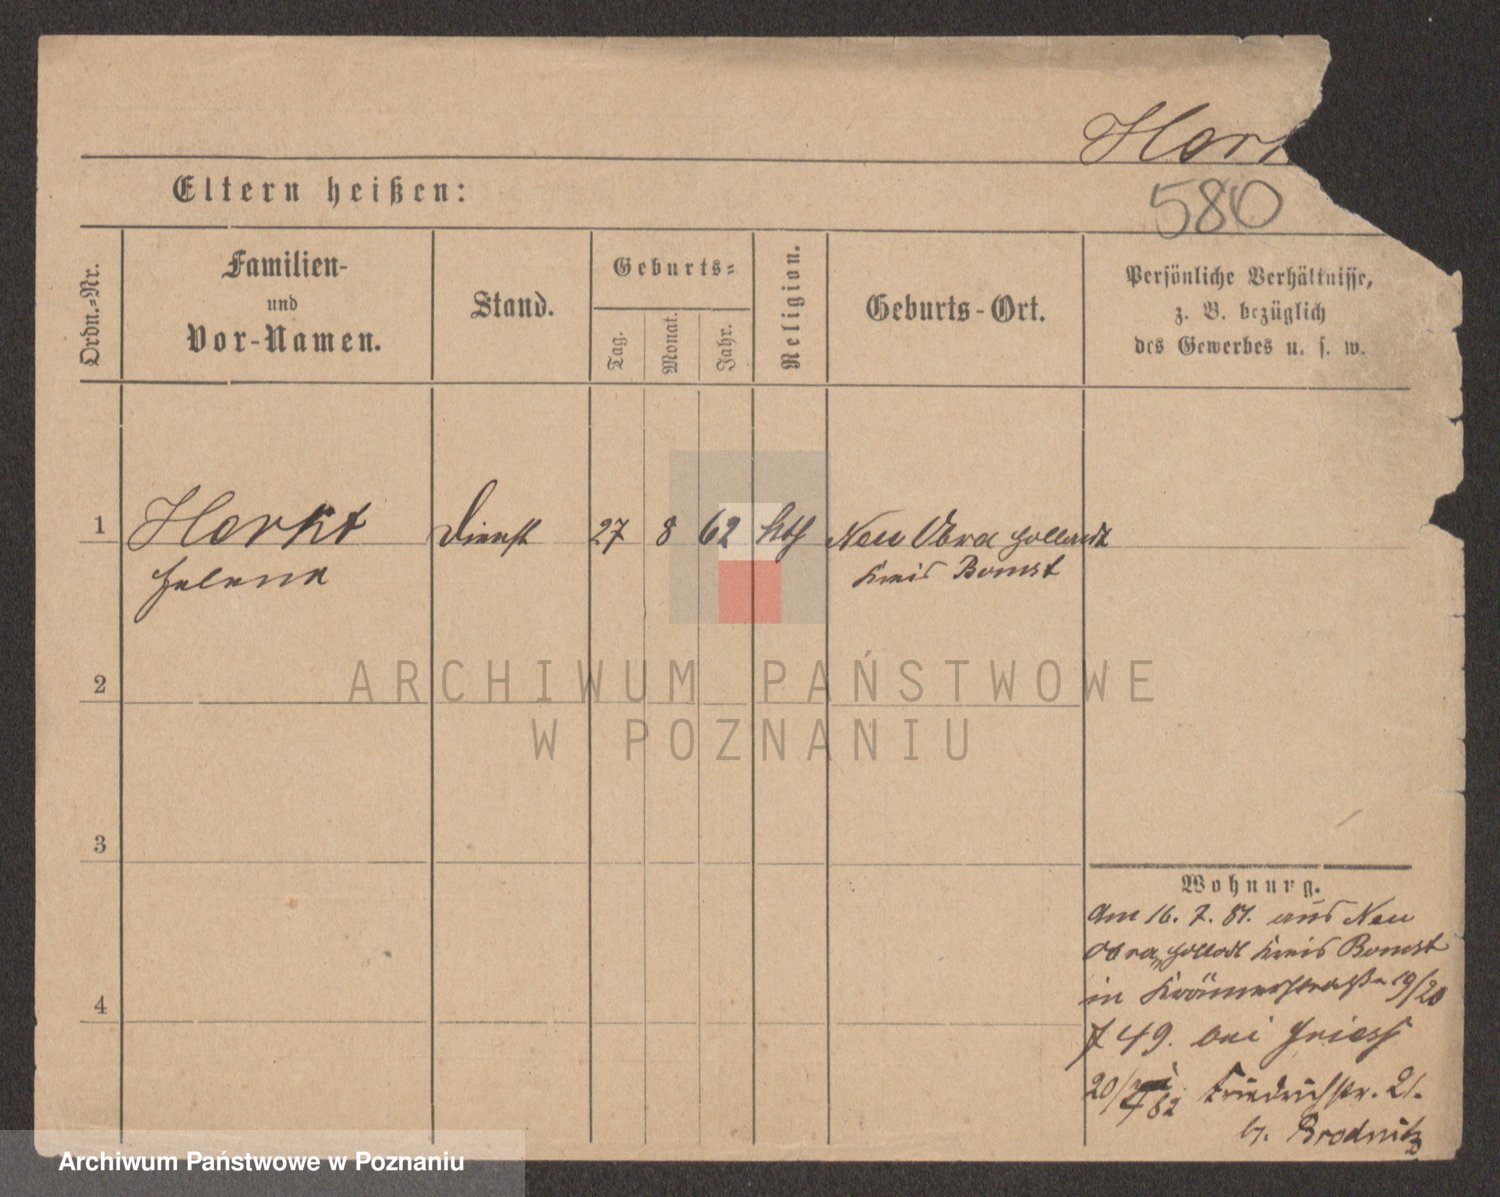 Hork
580
Eltern heißen:
Ordn.-Nr.
Familien-
und
Vor-Namen.
Stand.
Geburts-
Tag.
Monat.
Jahr.
Religion.
Geburts-Ort.
Persönliche Verhältnisse,
z. B. bezüglich
des Gewerbes u. s. w.
1 Horkt Dienst 27 8 62 kth Neu Obra Hollandt
Helena Kreis Bomst
2
3
4
Wohnung.
Am 16. 7. 81. aus Neu
Obra Kreis Bomst
in Krämerstraße 19/20
J 49. bei
20/ 82 Friedrichstr. 21.
b. Brodnitz
ARCHIWUM PAŃSTWOWE
W POZNANIU
Archiwum Państwowe w Poznaniu